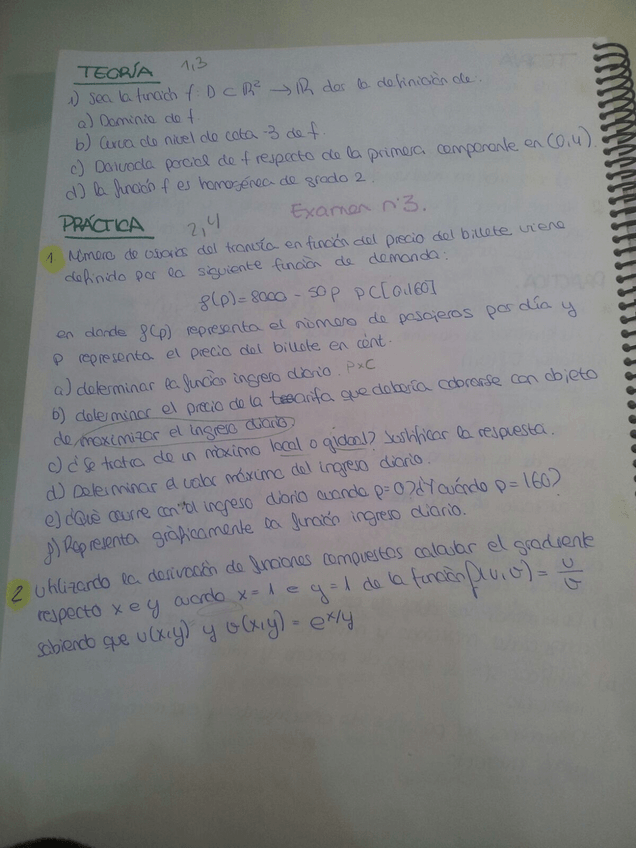 TEORÍA 1,3
1) Sea la función f: D ⊂ R² → R, das la definición de:
a) Dominio de f.
b) Curva de nivel de cota -3 de f.
c) Derivada parcial de f respecto de la primera componente en (0,4).
d) La función f es homogénea de grado 2.
Examen nº3.
PRÁCTICA 2,4
1 Número de usuarios del tranvía en función del precio del billete viene
definido por la siguiente función de demanda:
f(p) = 8000 - 50p p C [0,160]
en donde f(p) representa el número de pasajeros por día y
p representa el precio del billete en cént.
a) determinar la función ingreso diario. P×C
b) determinar el precio de la tarifa que debería cobrarse con objeto
de maximizar el ingreso diario.
c) ¿Se trata de un máximo local o global? Justificar la respuesta.
d) Determinar el valor máximo del ingreso diario.
e) ¿Qué ocurre con el ingreso diario cuando p=0? ¿Y cuándo p=160?
f) Representa gráficamente la función ingreso diario.
2 Utilizando la derivación de funciones compuestas calcular el gradiente
respecto x e y cuando x=1 e y=1 de la función f(u,v) = u/v
sabiendo que u(x,y) y v(x,y) = e^x/y